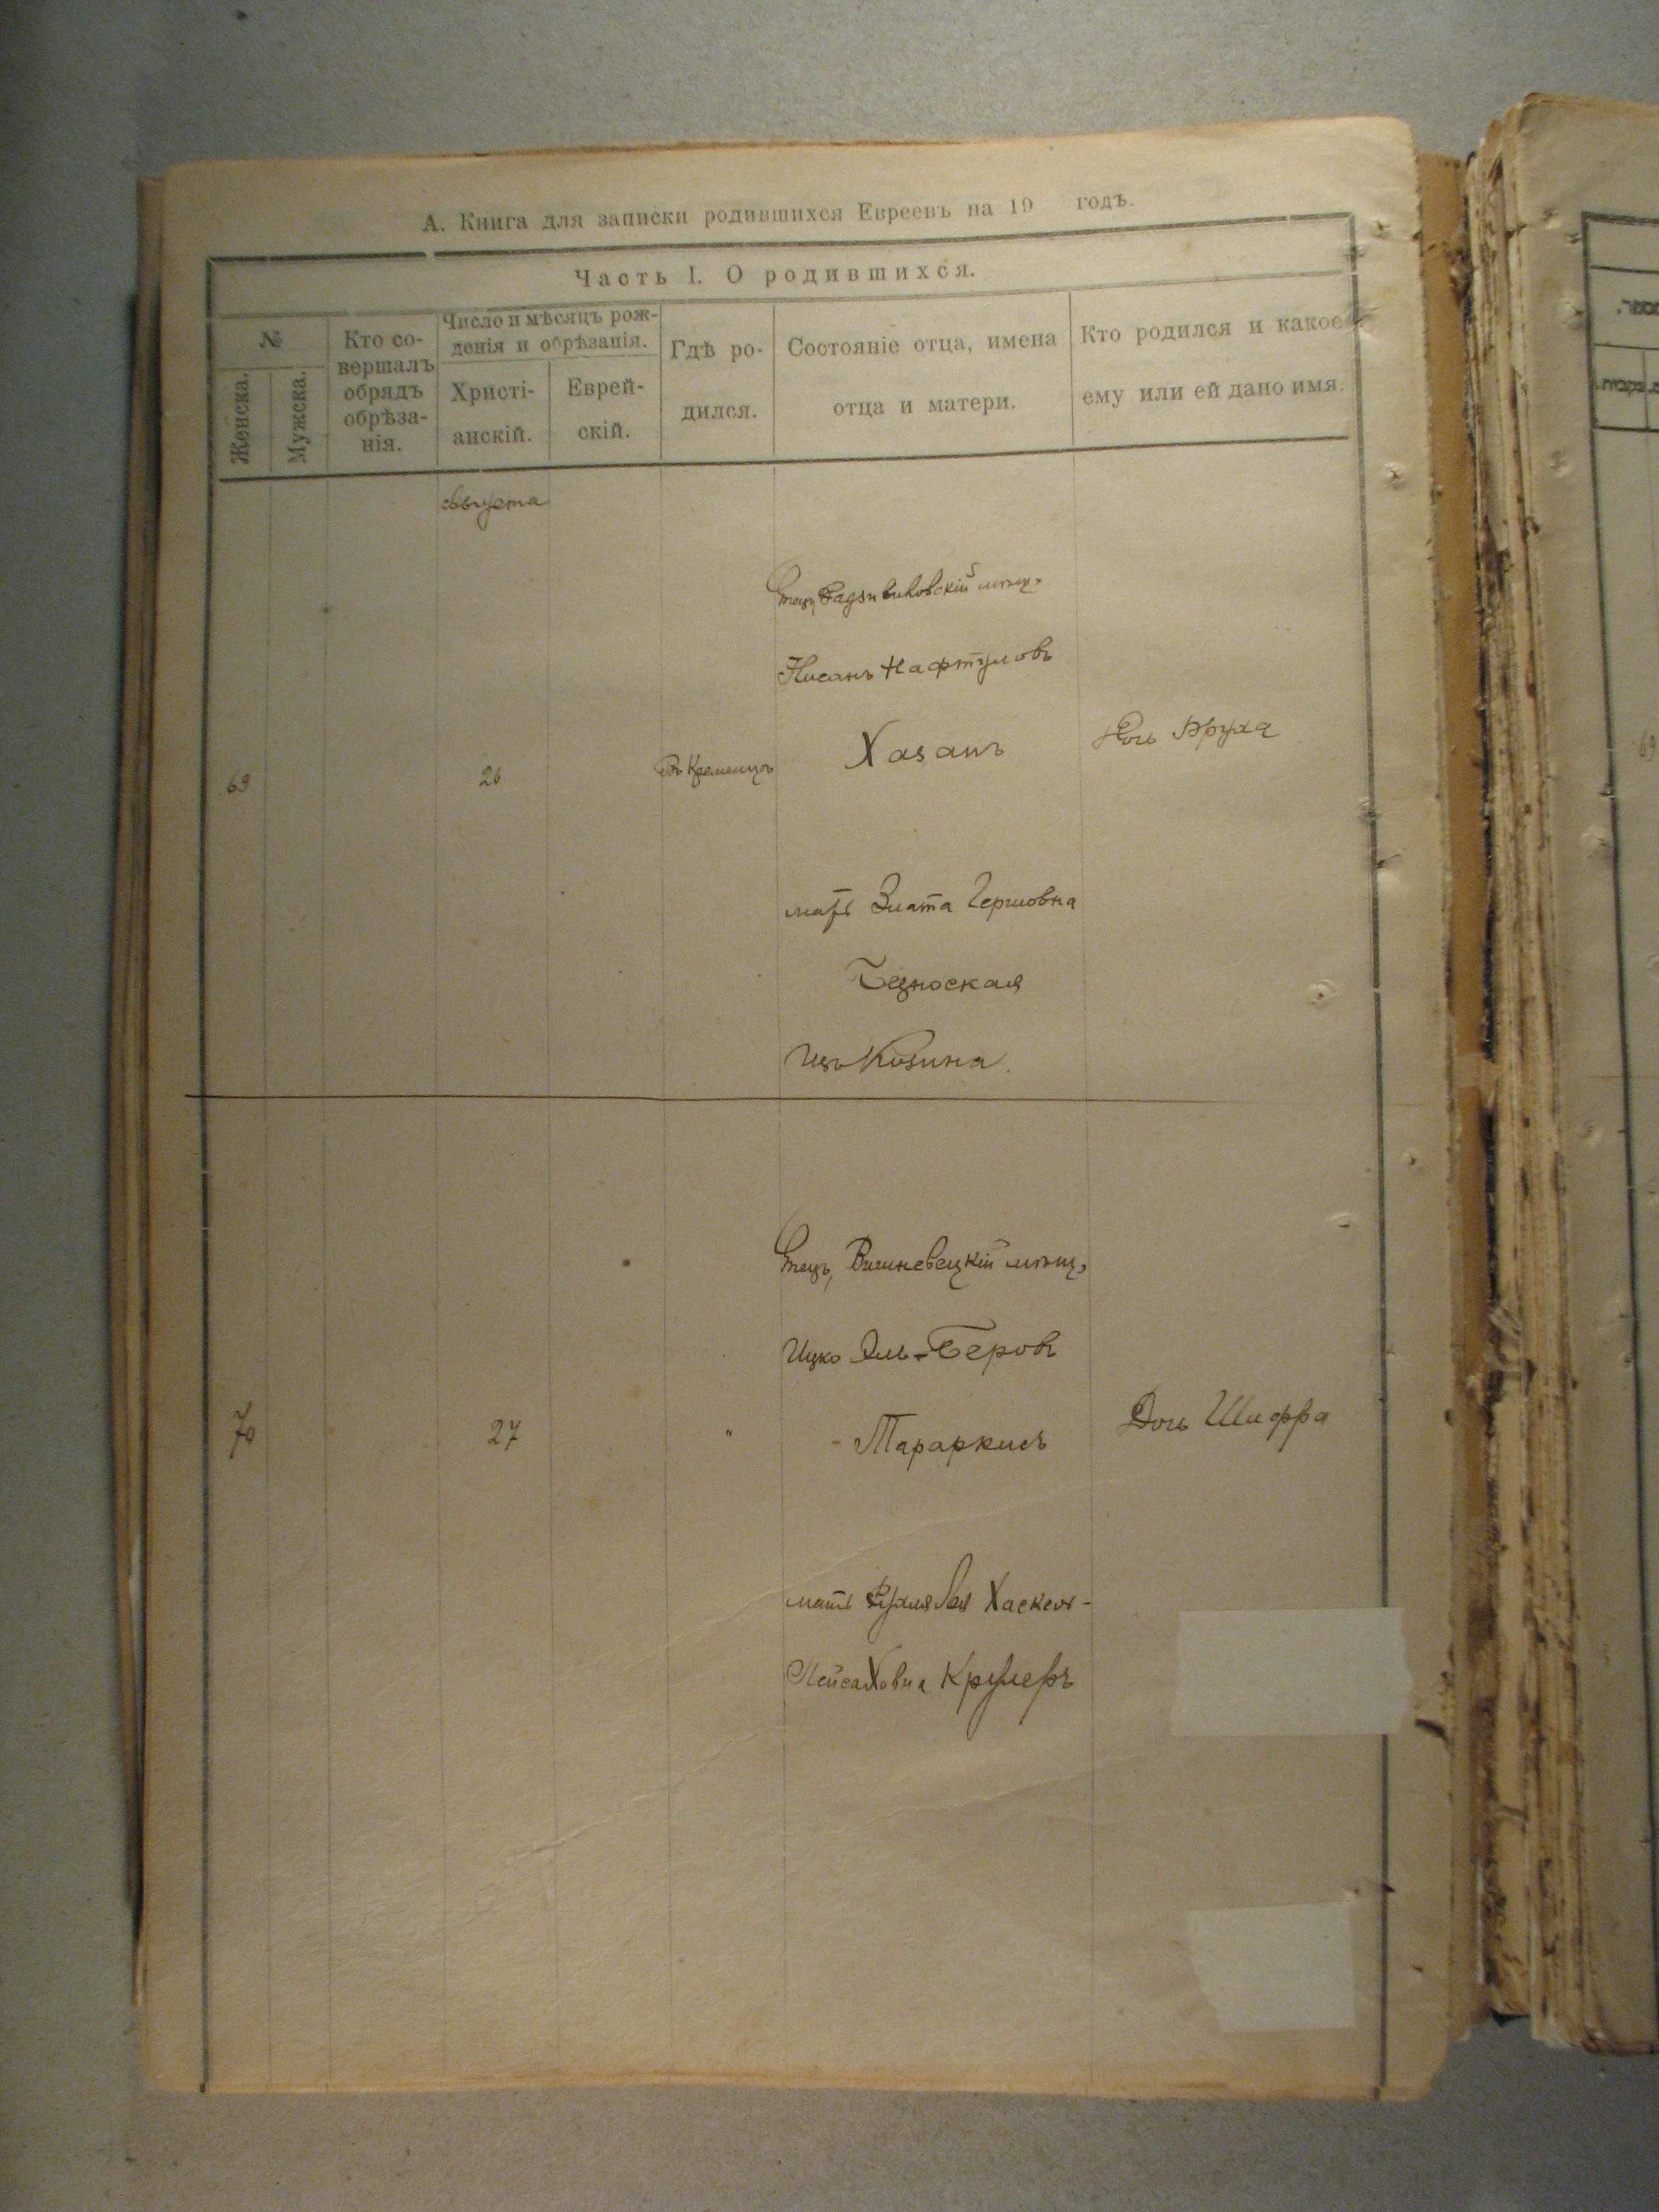 А. Книга для записки родившихся Евреевъ на 19 годъ.
Часть I. О родившихся.
№
Женска.
Мужска.
Кто со-
вершалъ
обрядъ
обрѣза-
нія.
Число и мѣсяцъ рож-
денія и обрѣзанія.
Христі-
анскій.
Еврей-
скій.
Гдѣ ро-
дился.
Состояніе отца, имена
отца и матери.
Кто родился и какое
ему или ей дано имя.
Августа
69
26
Въ Кременцѣ
Отецъ, Радзивиловскій мѣщ.
Нисанъ Нафтуловъ
Хазанъ
мать Злата Гершовна
изъ Козина.
Дочь Бруха
70
27
"
Отецъ, Вишневецкій мѣщ.
Ицко Эль-Беровъ
Тараркисъ
мать Рухля Лея Хаскель-
Пейсаховна Крулеръ
Дочь Шифра
69